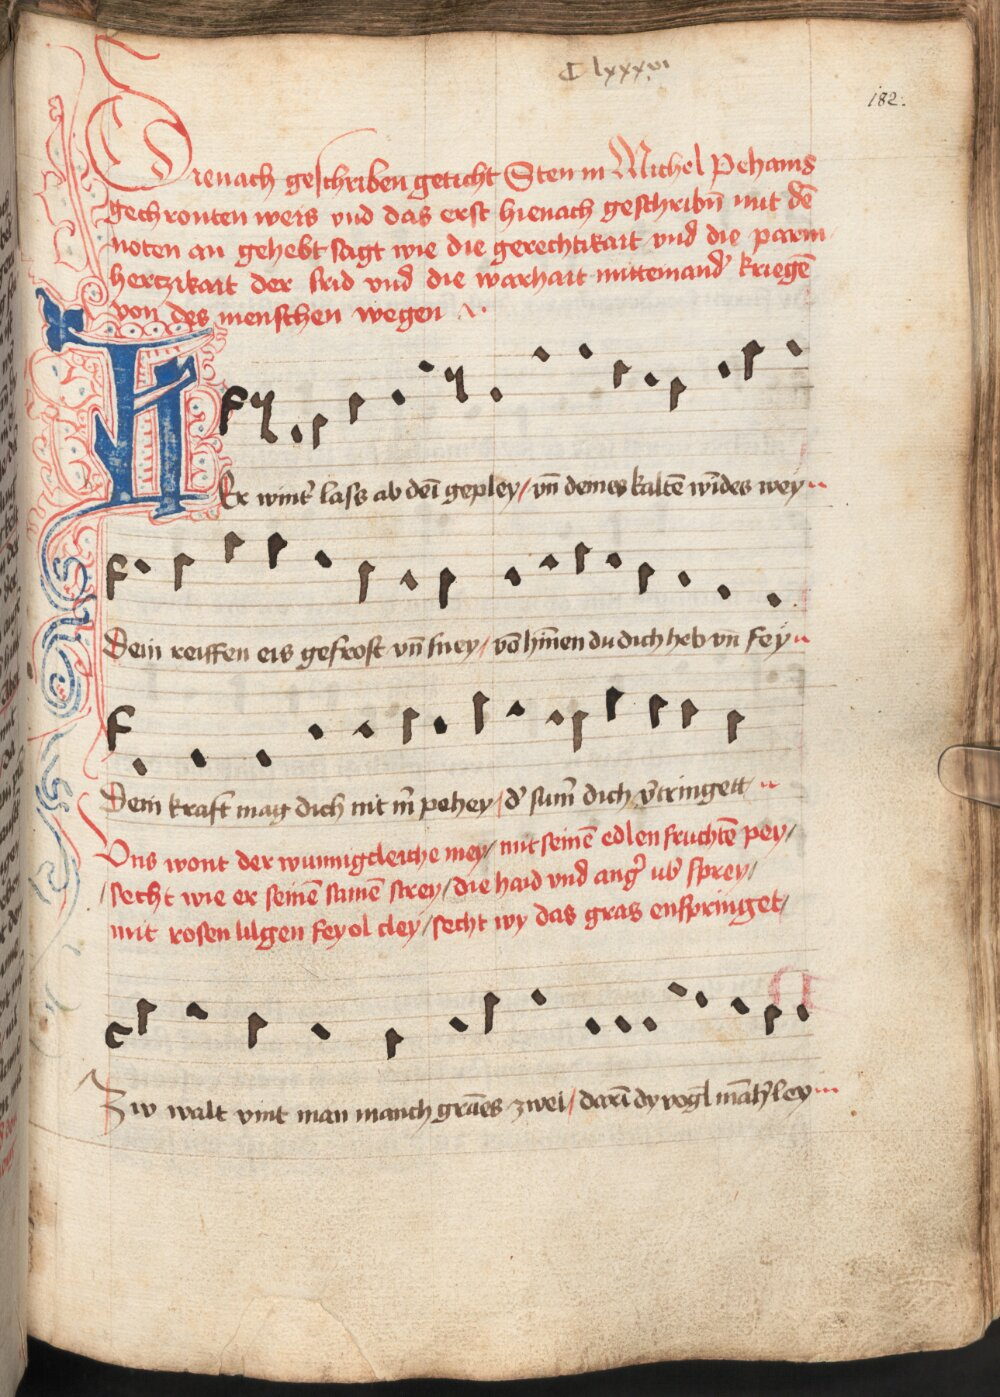 C lxxxvi
182.
Hienach geschriben geticht Sten in Michel Pehams
gechronten weis vnd das erst hienach geschribn̄ mit dē
noten an gehebt sagt wie die gerechtikait vnd die parm
hertzikait der frid vnd die warhait miteinand' kriegē
von des menschen wegen
Er wint' lass ab deī gepley / vn̄ deines kaltē wīdes wey
Dein reiffen eis gefrost vn̄ sney / vō hīnen du dich heb vn̄ fey
Dein kraft mag dich nit in̄ pehey / d' sum̄ dich v'tringett
Vns wont der wunnigcleiche mey / mit seinē edlen fruchtē pey /
secht wie er seinē samē strey / die haid vnd ang' ub' sprey /
mit rosen lilgen feyol cley / secht wy das gras enspringet /
Zw walt vint man manch grūes zwei / darī dy vogl māch'ley